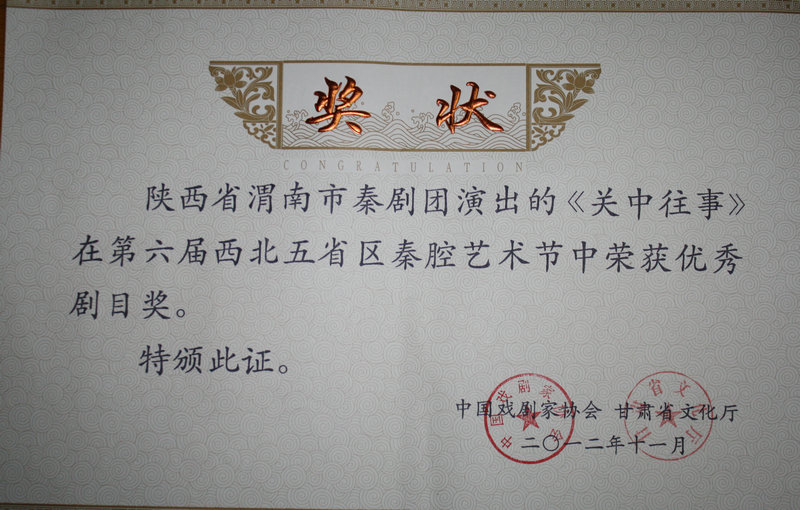 奖状
CONGRATULATION
陕西省渭南市秦剧团演出的《关中往事》
在第六届西北五省区秦腔艺术节中荣获优秀
剧目奖。
特颁此证。
中国戏剧家协会 甘肃省文化厅
二〇一二年十一月
中国戏剧家协会
甘肃省文化厅